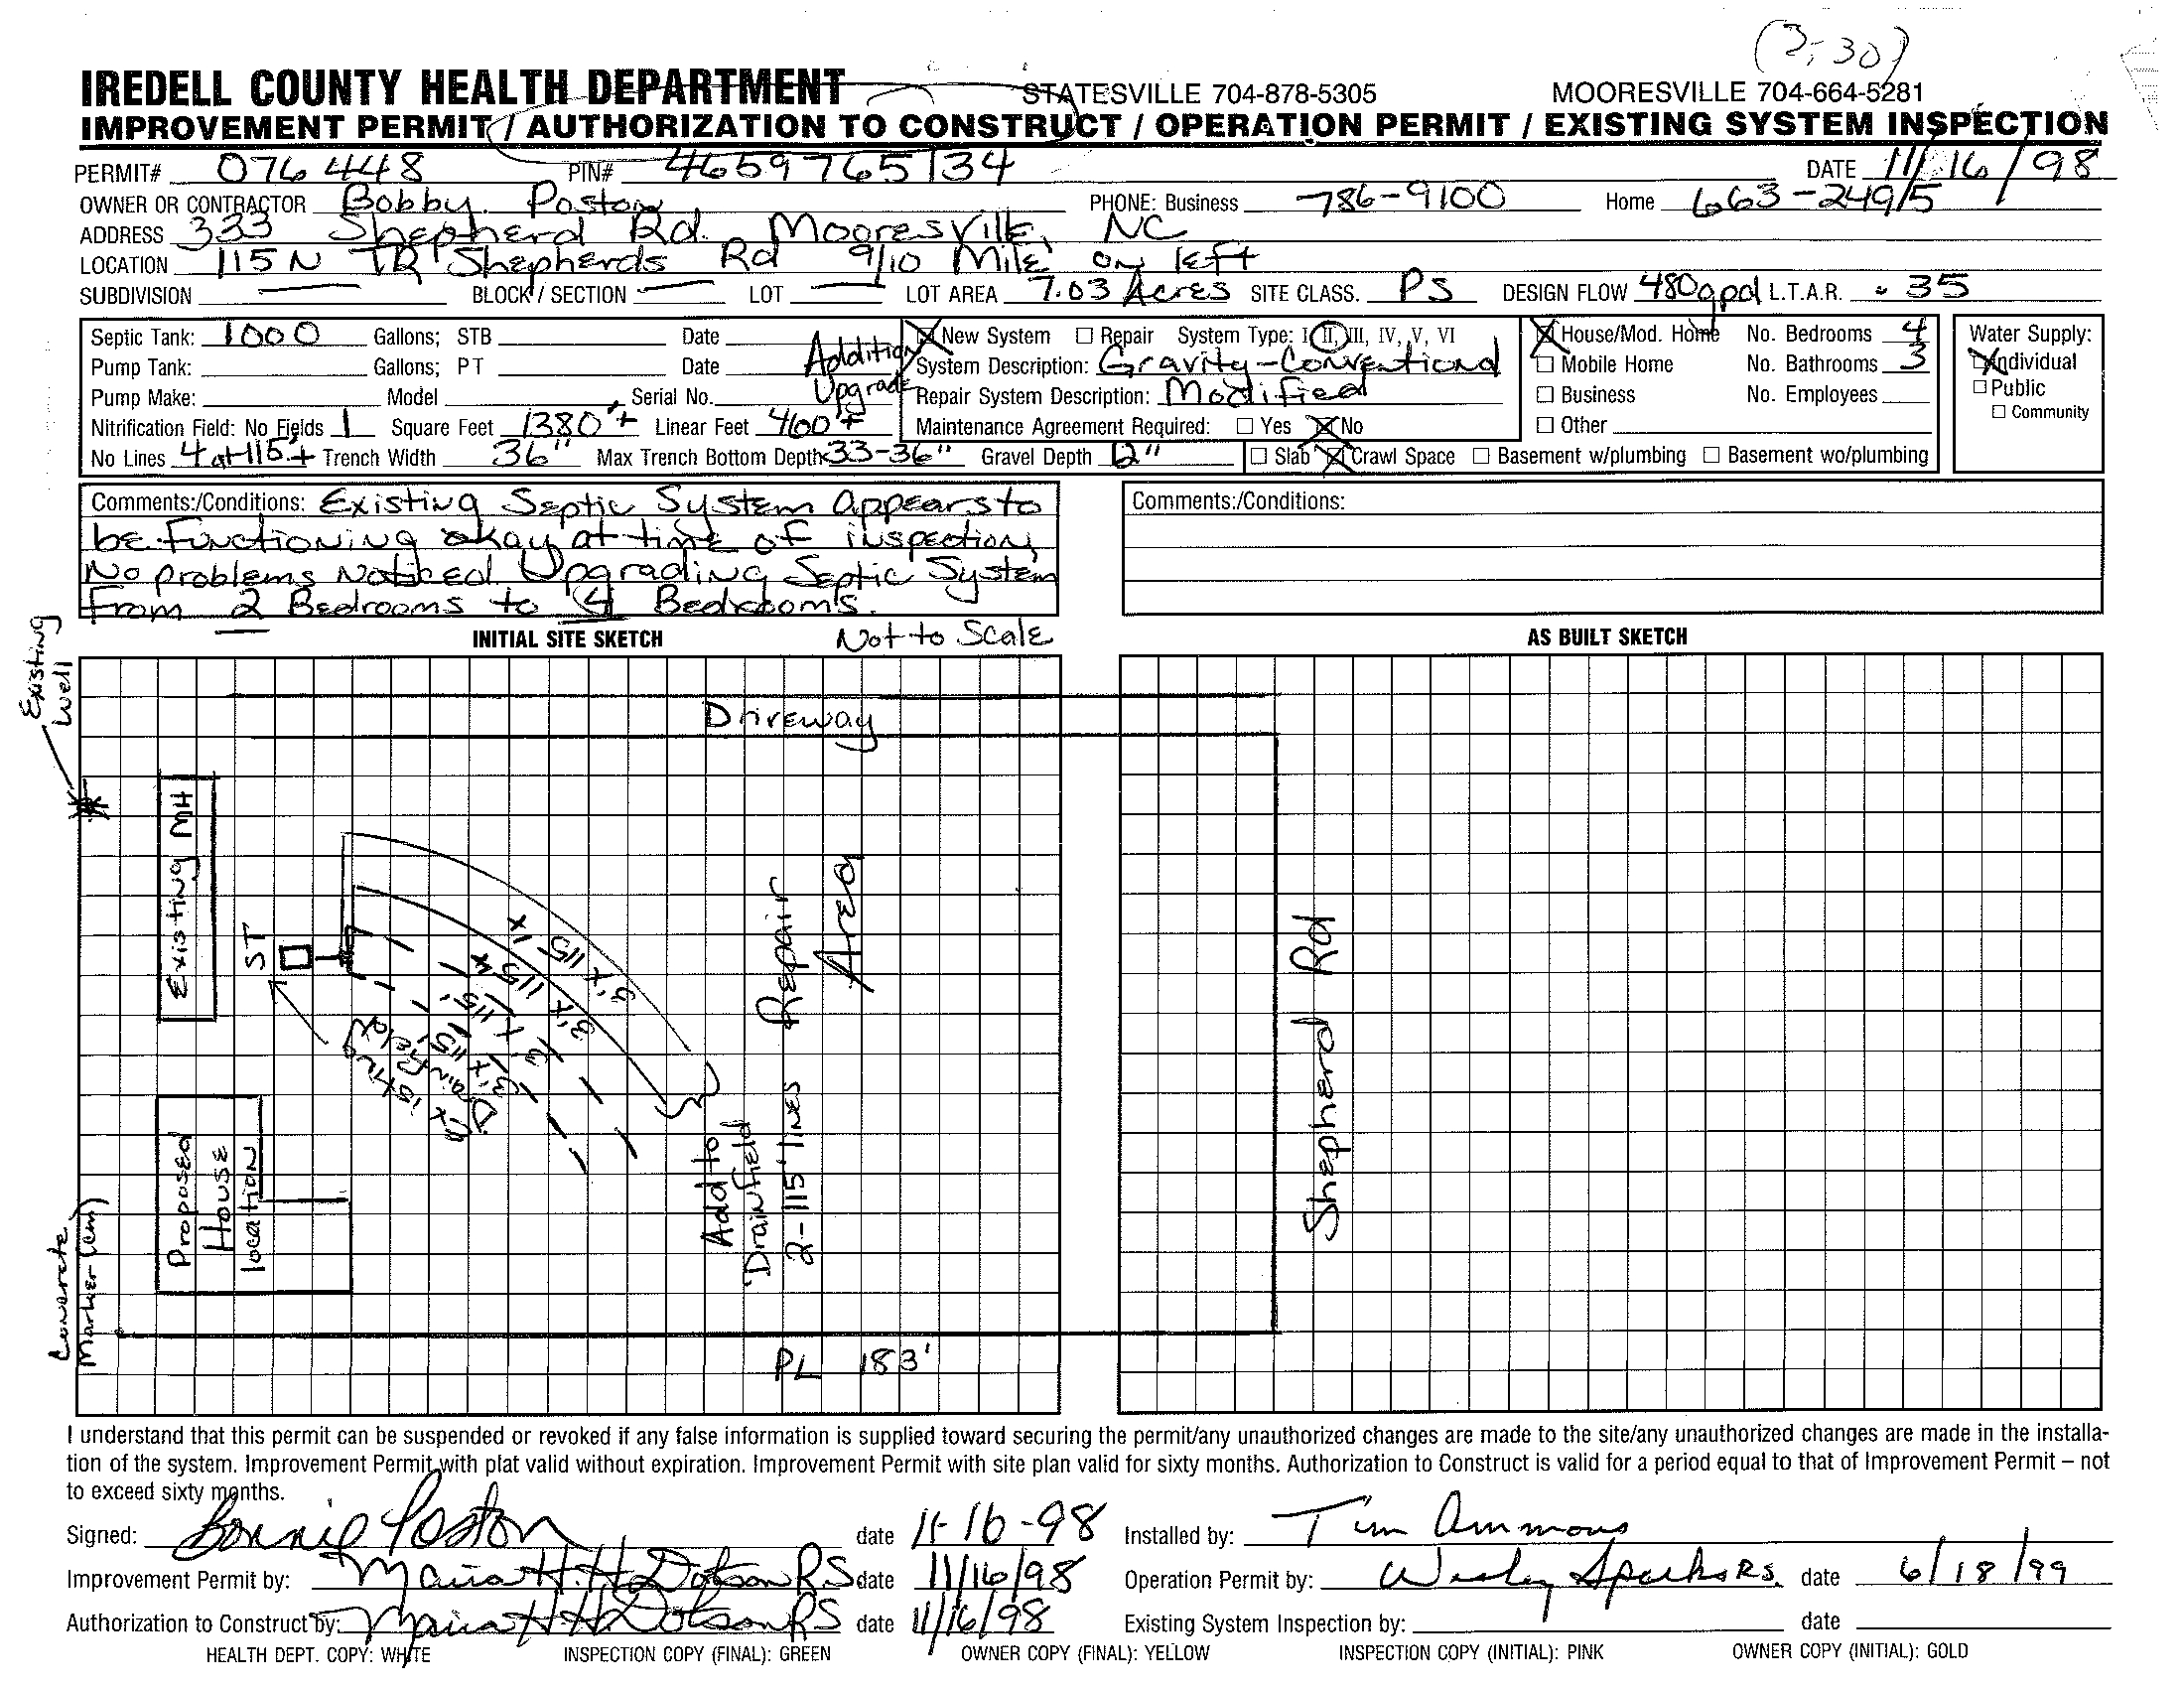 (3:30)
IREDELL COUNTY HEALTH DEPARTMENT STATESVILLE 704-878-5305 MOORESVILLE 704-664-5281
IMPROVEMENT PERMIT / AUTHORIZATION TO CONSTRUCT / OPERATION PERMIT / EXISTING SYSTEM INSPECTION
PERMIT# 076448 PIN# 4659765134 DATE 11/16/98
OWNER OR CONTRACTOR Bobby Poston PHONE: Business 786-9100 Home 663-2495
ADDRESS 333 Shepherd Rd. Mooresville, NC
LOCATION 115 N TR Shepherds Rd 9/10 Mile on left
SUBDIVISION — BLOCK / SECTION — LOT — LOT AREA 7.03 Acres SITE CLASS. PS DESIGN FLOW 480gpd L.T.A.R. .35
Septic Tank: 1000 Gallons; STB Date
Pump Tank: Gallons; PT Date
Pump Make: Model Serial No.
Nitrification Field: No Fields 1 Square Feet 1380'+ Linear Feet 460'+
No Lines 4 at 115'+ Trench Width 36" Max Trench Bottom Depth 33-36" Gravel Depth 12"
Addition
Upgrade
☒ New System ☐ Repair System Type: I, II, III, IV, V, VI
System Description: Gravity-Conventional
Repair System Description: Modified
Maintenance Agreement Required: ☐ Yes ☒ No
☒ House/Mod. Home No. Bedrooms 4
☐ Mobile Home No. Bathrooms 3
☐ Business No. Employees
☐ Other
☐ Slab ☒ Crawl Space ☐ Basement w/plumbing ☐ Basement wo/plumbing
Water Supply:
☒ Individual
☐ Public
☐ Community
Comments:/Conditions: Existing Septic System appears to
be functioning okay at time of inspection,
No problems Noticed. Upgrading Septic System
From 2 Bedrooms to 4 Bedrooms.
Comments:/Conditions:
INITIAL SITE SKETCH Not to Scale
AS BUILT SKETCH
Existing
Well
Driveway
Existing MH
ST
3' x 115'
3' x 115'
3' x 115'
3' x 115'
Existing
Drainfield
Repair
Area
Add to
Drainfield
2-115' lines
Proposed
House
location
Concrete
Marker
Shepherd Rd
PL 183'
I understand that this permit can be suspended or revoked if any false information is supplied toward securing the permit/any unauthorized changes are made to the site/any unauthorized changes are made in the installa-
tion of the system. Improvement Permit with plat valid without expiration. Improvement Permit with site plan valid for sixty months. Authorization to Construct is valid for a period equal to that of Improvement Permit – not
to exceed sixty months.
Signed: Bonnie Poston date 11-16-98
Improvement Permit by: Maria H. H. Dotson RS date 11/16/98
Authorization to Construct by: Maria H. H. Dotson RS date 11/16/98
Installed by: Tim Ammons
Operation Permit by: Wesley Sparks R.S. date 6/18/99
Existing System Inspection by: date
HEALTH DEPT. COPY: WHITE INSPECTION COPY (FINAL): GREEN OWNER COPY (FINAL): YELLOW INSPECTION COPY (INITIAL): PINK OWNER COPY (INITIAL): GOLD